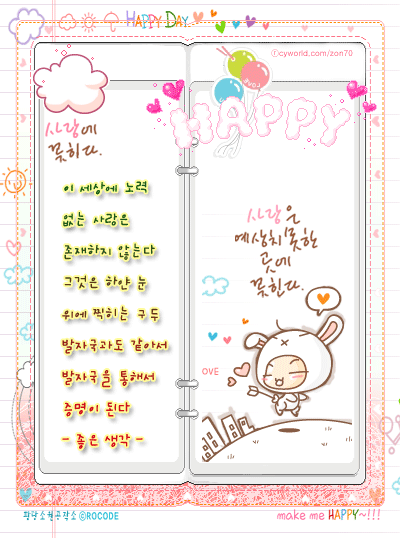 HAPPY DAY
ⓒcyworld.com/zon70
HAPPY
사랑에
꽂히다.
이 세상에 노력
없는 사랑은
존재하지 않는다
그것은 하얀 눈
위에 찍히는 구두
발자국과도 같아서
발자국을 통해서
증명이 된다
- 좋은 생각 -
사랑은
예상치 못한
곳에
꽂힌다.
OVE
퐝당소원공작소 ⓒROCODE
make me HAPPY~!!!